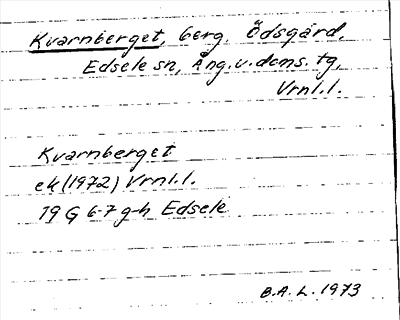 Kvarnberget, berg, Ödsgård,
Edsele sn, Ång.v.doms. tg,
Vrnl.l.
Kvarnberget
ek (1972) Vrnl.l.
19 G 6-7 g-h Edsele
B.A.L. 1973